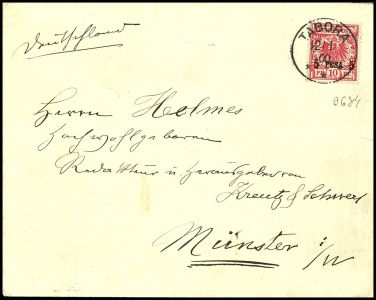 Deutschland
TABORA
5 PESA 5
10
9684
Herrn Helmes
Hochwohlgeboren
Redakteur u Herausgeber von
Kreutz & Schwert
Münster i/W